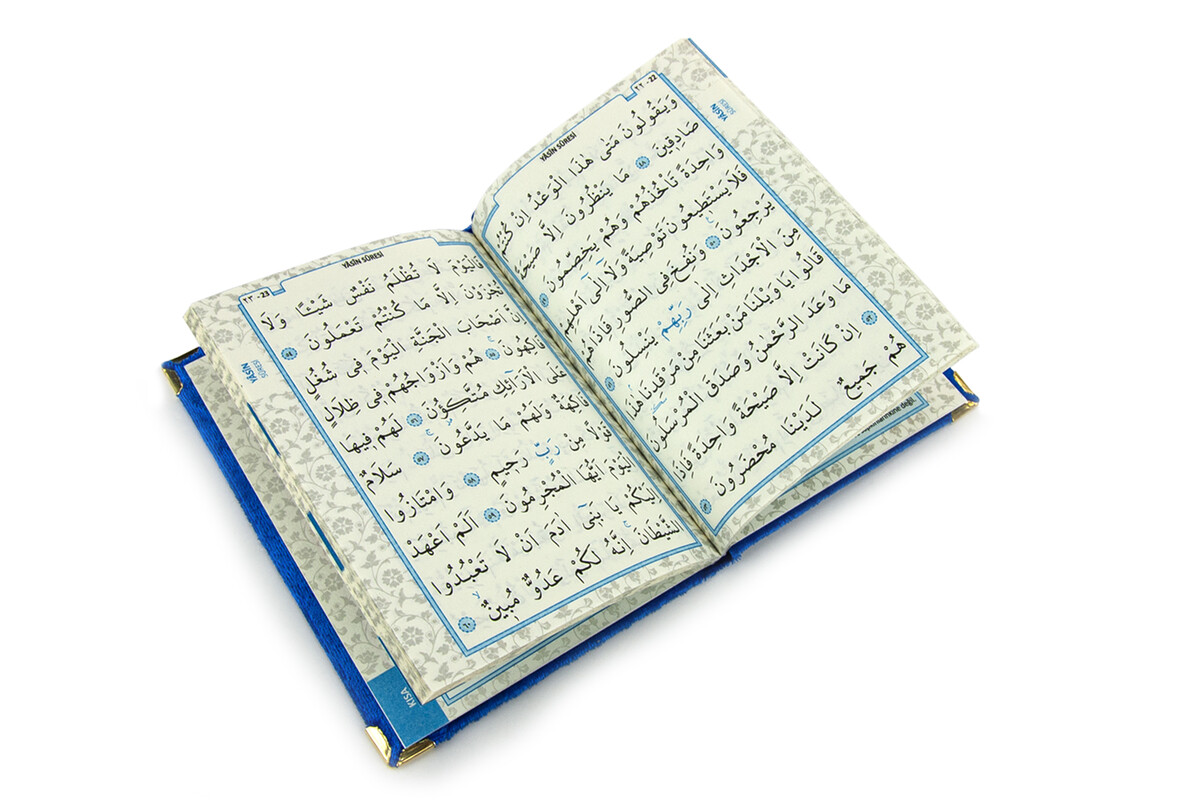 ٢٢ - 22
YÂSÎN SÛRESİ
YÂSÎN
SÛRESİ
وَيَقُولُونَ مَتٰى هٰذَا الْوَعْدُ اِنْ كُنْتُمْ
صَادِقِينَ ٤٨ مَا يَنْظُرُونَ اِلَّا صَيْحَةً
وَاحِدَةً تَأْخُذُهُمْ وَهُمْ يَخِصِّمُونَ ٤٩
فَلَا يَسْتَطِيعُونَ تَوْصِيَةً وَلَٓا اِلٰٓى اَهْلِهِمْ
يَرْجِعُونَ ٥٠ وَنُفِخَ فِى الصُّورِ فَاِذَا هُمْ
مِنَ الْاَجْدَاثِ اِلٰى رَبِّهِمْ يَنْسِلُونَ ٥١
قَالُوا يَا وَيْلَنَا مَنْ بَعَثَنَا مِنْ مَرْقَدِنَا هٰذَا
مَا وَعَدَ الرَّحْمٰنُ وَصَدَقَ الْمُرْسَلُونَ ٥٢
اِنْ كَانَتْ اِلَّا صَيْحَةً وَاحِدَةً فَاِذَا
هُمْ جَمِيعٌ لَدَيْنَا مُحْضَرُونَ ٥٣
٢٣ - 23
YÂSÎN SÛRESİ
YÂSÎN
SÛRESİ
فَالْيَوْمَ لَا تُظْلَمُ نَفْسٌ شَيْئًا وَلَا
تُجْزَوْنَ اِلَّا مَا كُنْتُمْ تَعْمَلُونَ ٥٤
اِنَّ اَصْحَابَ الْجَنَّةِ الْيَوْمَ فِى شُغُلٍ
فَاكِهُونَ ٥٥ هُمْ وَاَزْوَاجُهُمْ فِى ظِلَالٍ
عَلَى الْاَرَٓائِكِ مُتَّكِؤُنَ ٥٦ لَهُمْ فِيهَا
فَاكِهَةٌ وَلَهُمْ مَا يَدَّعُونَ ٥٧ سَلَامٌ
قَوْلًا مِنْ رَبٍّ رَحِيمٍ ٥٨ وَامْتَازُوا
الْيَوْمَ اَيُّهَا الْمُجْرِمُونَ ٥٩ اَلَمْ اَعْهَدْ
اِلَيْكُمْ يَا بَنِىٓ اٰدَمَ اَنْ لَا تَعْبُدُوا
الشَّيْطَانَ اِنَّهُ لَكُمْ عَدُوٌّ مُبِينٌ ٦٠
KISA